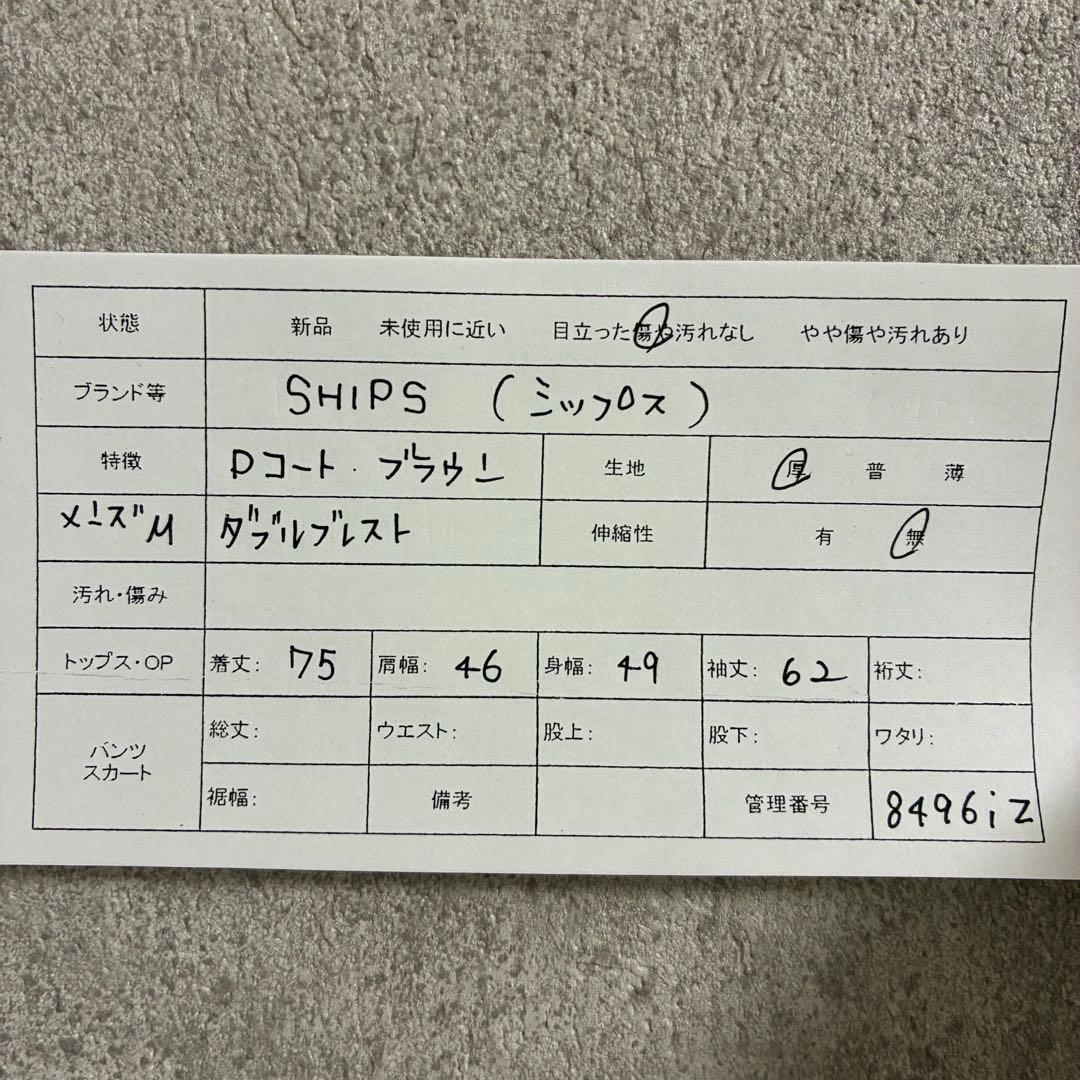 状態 新品 未使用に近い 目立った傷や汚れなし やや傷や汚れあり
ブランド等 SHIPS (シップス)
特徴 Pコート ブラウン 生地 厚 普 薄
メンズM ダブルブレスト 伸縮性 有 無
汚れ・傷み
トップス・OP 着丈: 75 肩幅: 46 身幅: 49 袖丈: 62 裄丈:
パンツ スカート 総丈: ウエスト: 股上: 股下: ワタリ:
裾幅: 備考 管理番号 8496iz